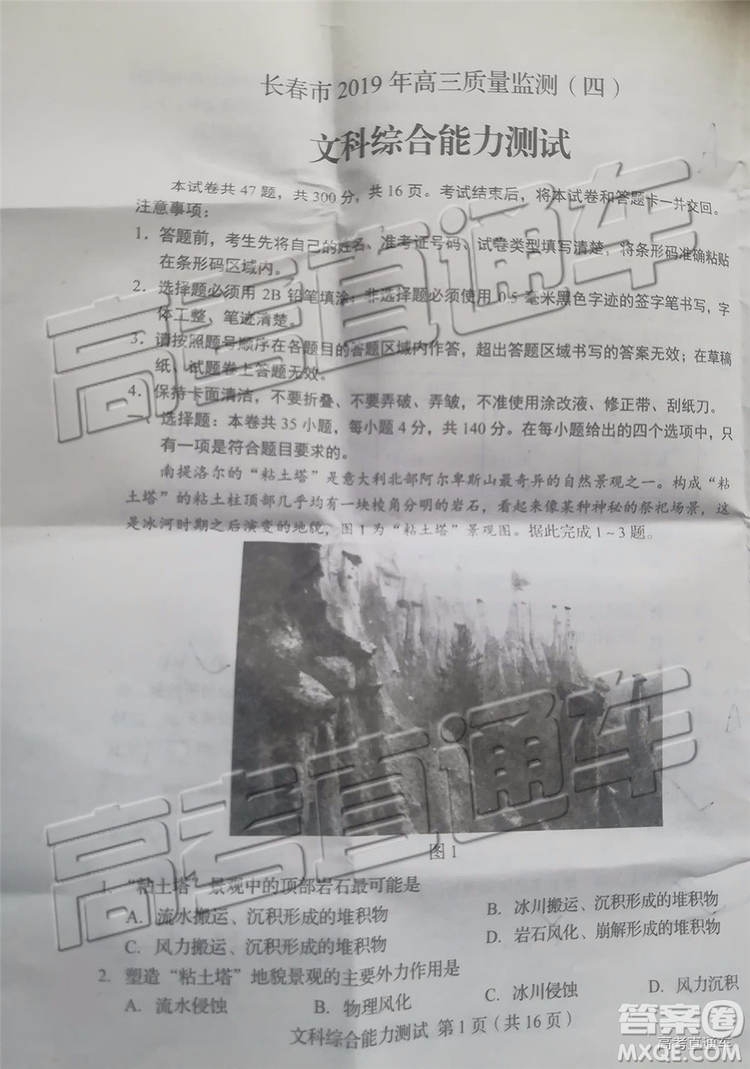 长春市2019年高三质量监测（四）
文科综合能力测试
本试卷共47题，共300分，共16页。考试结束后，将本试卷和答题卡一并交回。
注意事项：
1．答题前，考生先将自己的姓名、准考证号码、试卷类型填写清楚，将条形码准确粘贴
在条形码区域内。
2．选择题必须用2B铅笔填涂；非选择题必须使用0.5毫米黑色字迹的签字笔书写，字
体工整、笔迹清楚。
3．请按照题号顺序在各题目的答题区域内作答，超出答题区域书写的答案无效；在草稿
纸、试题卷上答题无效。
4．保持卡面清洁，不要折叠、不要弄破、弄皱，不准使用涂改液、修正带、刮纸刀。
一、选择题：本卷共35小题，每小题4分，共140分。在每小题给出的四个选项中，只
有一项是符合题目要求的。
南提洛尔的“粘土塔”是意大利北部阿尔卑斯山最奇异的自然景观之一。构成“粘
土塔”的粘土柱顶部几乎均有一块棱角分明的岩石，看起来像某种神秘的祭祀场景，这
是冰河时期之后演变的地貌，图1为“粘土塔”景观图。据此完成1～3题。
图1
1．“粘土塔”景观中的顶部岩石最可能是
A．流水搬运、沉积形成的堆积物 B．冰川搬运、沉积形成的堆积物
C．风力搬运、沉积形成的堆积物 D．岩石风化、崩解形成的堆积物
2．塑造“粘土塔”地貌景观的主要外力作用是
A．流水侵蚀 B．物理风化 C．冰川侵蚀 D．风力沉积
文科综合能力测试 第1页（共16页）
高考直通车
高考直通车
答案圈
高考直通车
MXQE.COM